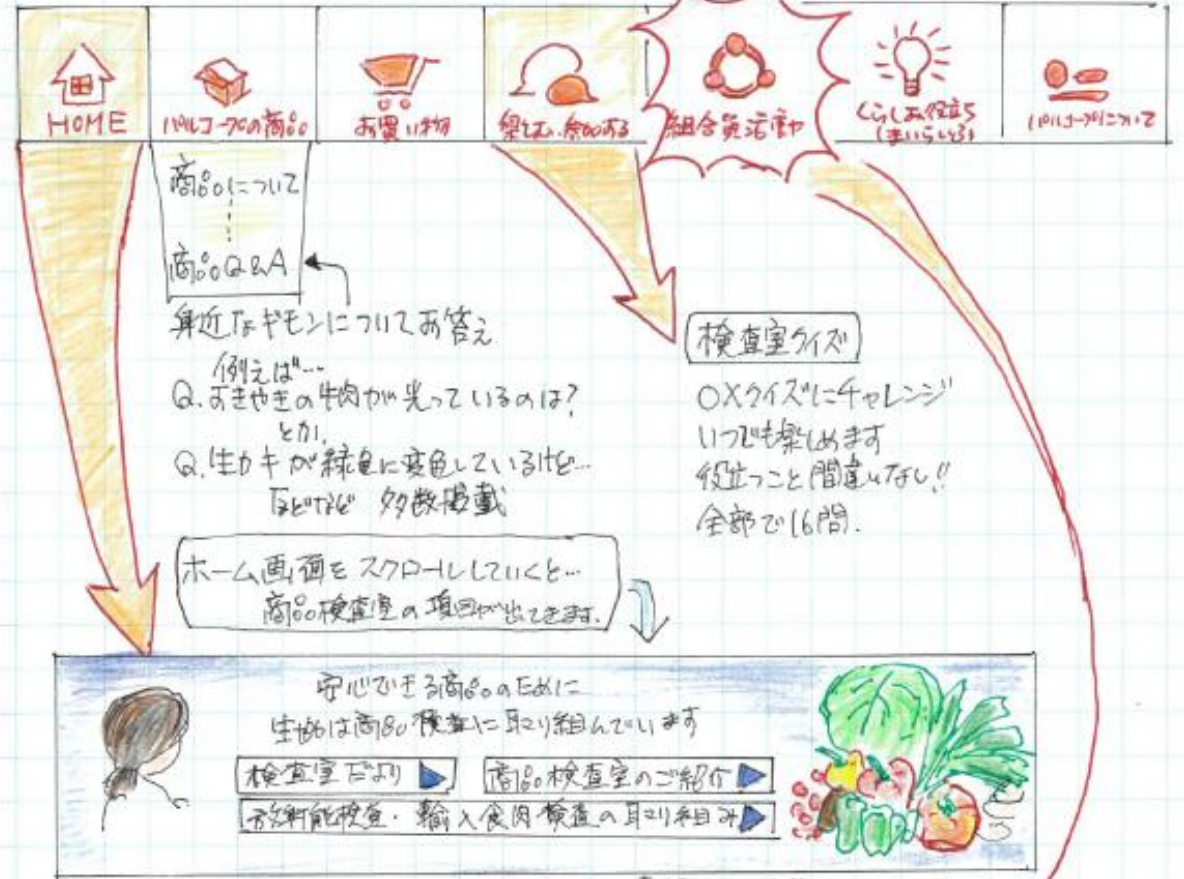 HOME
パルコープの商品
お買い物
楽しむ・参加する
組合員活動
くらしお役立ち
(まいらいふ)
パルコープについて
商品について
商品Q&A
身近なギモンについてお答え
例えば…
Q.すきやきの牛肉が光っているのは?
とか、
Q.生カキが緑色に変色しているけど…
などなど 多数掲載
検査室クイズ
○×クイズにチャレンジ
いつでも楽しめます
役立つこと間違いなし!!
全部で16問.
ホーム画面をスクロールしていくと…
商品検査室の項目が出てきます.
安心できる商品のために
生協は商品検査に取り組んでいます
検査室だより
商品検査室のご紹介
放射能検査・輸入食肉検査の取り組み